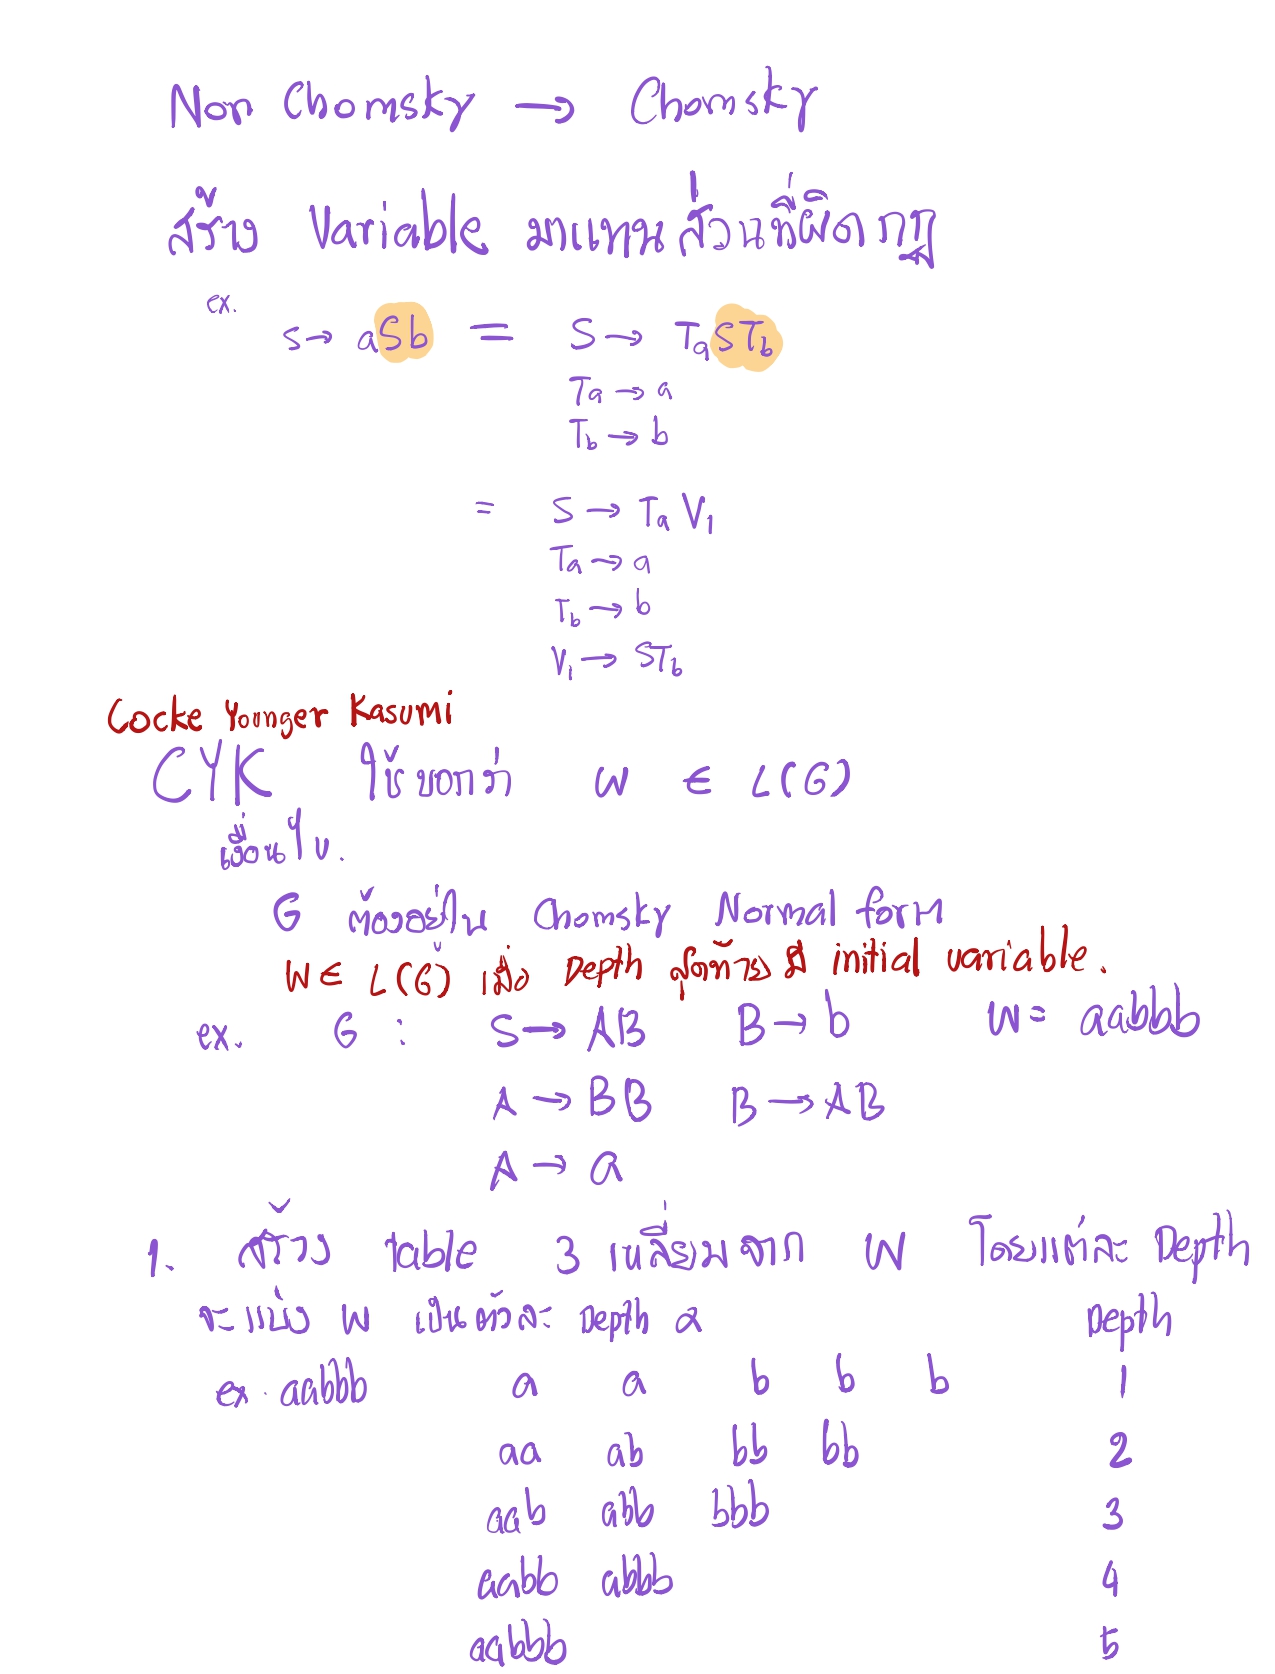 Non Chomsky → Chomsky
สร้าง Variable มาแทนส่วนที่ผิดกฏ
ex.
S → aSb = S → TaSTb
Ta → a
Tb → b
= S → Ta V1
Ta → a
Tb → b
V1 → STb
Cocke Younger Kasumi
CYK ใช้บอกว่า W ∈ L(G)
เงื่อนไข.
G ต้องอยู่ใน Chomsky Normal form
W ∈ L(G) เมื่อ Depth สุดท้าย มี initial variable.
ex. G : S → AB B → b W = aabbb
A → BB B → AB
A → a
1. สร้าง table 3 เหลี่ยมจาก W โดยแต่ละ Depth
จะแบ่ง W เป็นตัวละ Depth ๔ Depth
ex. aabbb a a b b b 1
aa ab bb bb 2
aab abb bbb 3
aabb abbb 4
aabbb 5